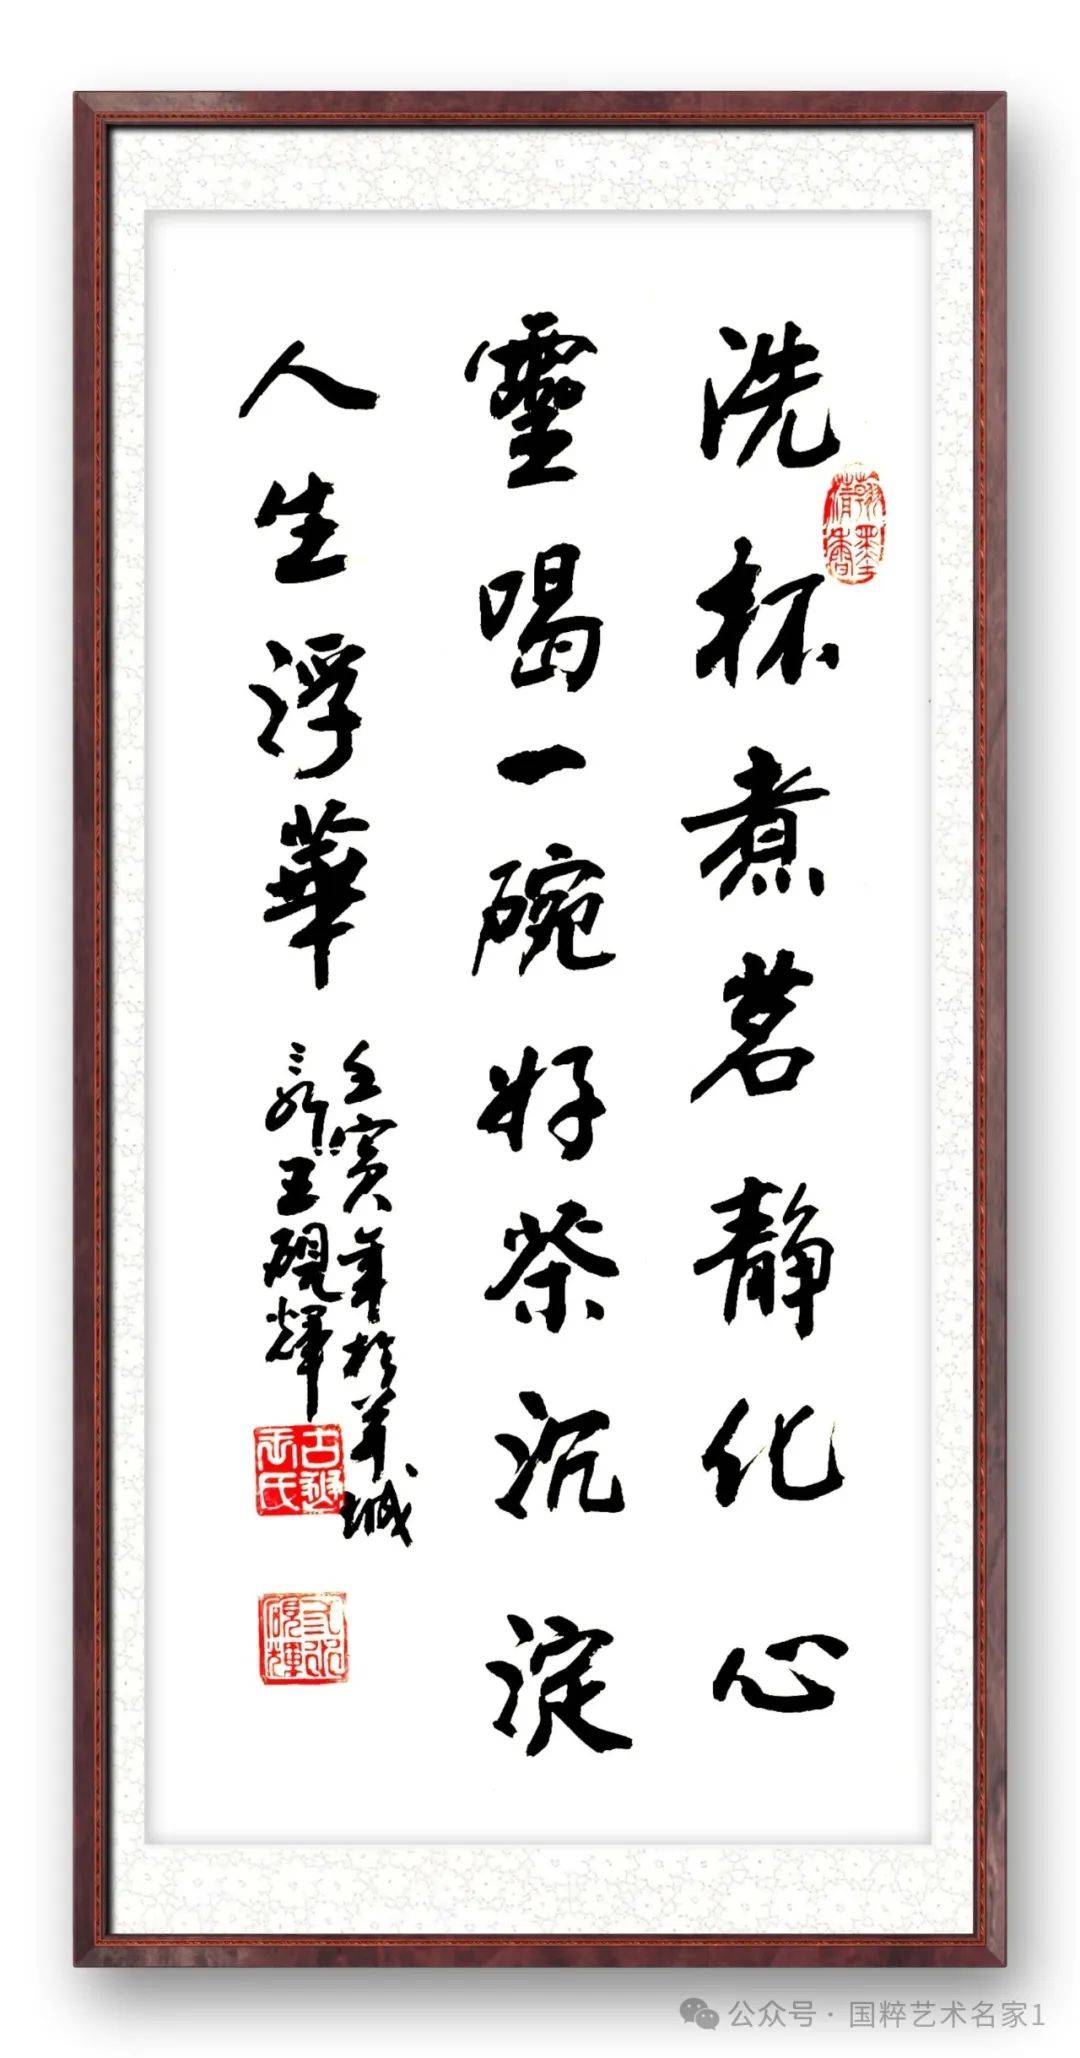 洗杯煮茗静化心
靈喝一碗好茶沉淀
人生浮華
壬寅年於羊城
王硯輝
翰墨清香
硯輝
公众号 · 国粹艺术名家1